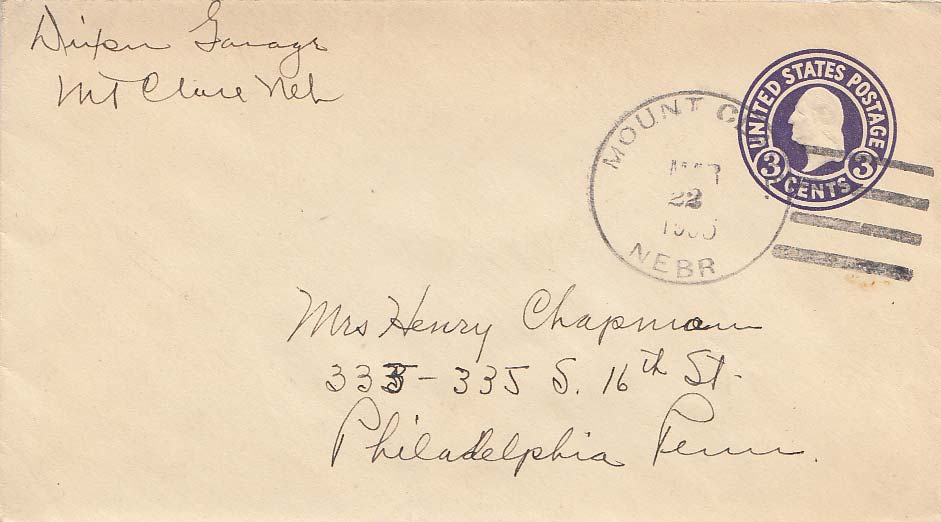 Dixon Garage
Mt Clare Neb
UNITED STATES POSTAGE
3 CENTS 3
MOUNT
22
NEBR
Mrs Henry Chapman
333-335 S. 16th St.
Philadelphia Penn.